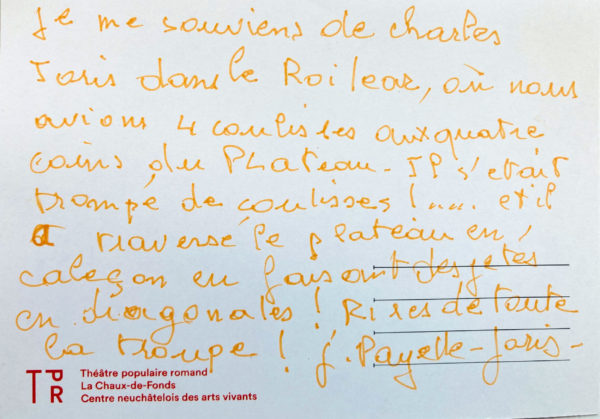 Je me souviens de charles
Joris dans le Roi lear, où nous
avions 4 coulisses aux quatre
coins du Plateau. Il s'était
trompé de coulisses !.... et il
a traversé le plateau en
caleçon en faisant des jetés
en diagonales ! Rires de toute
la troupe ! J. Payelle-Joris-
TPR
Théâtre populaire romand
La Chaux-de-Fonds
Centre neuchâtelois des arts vivants